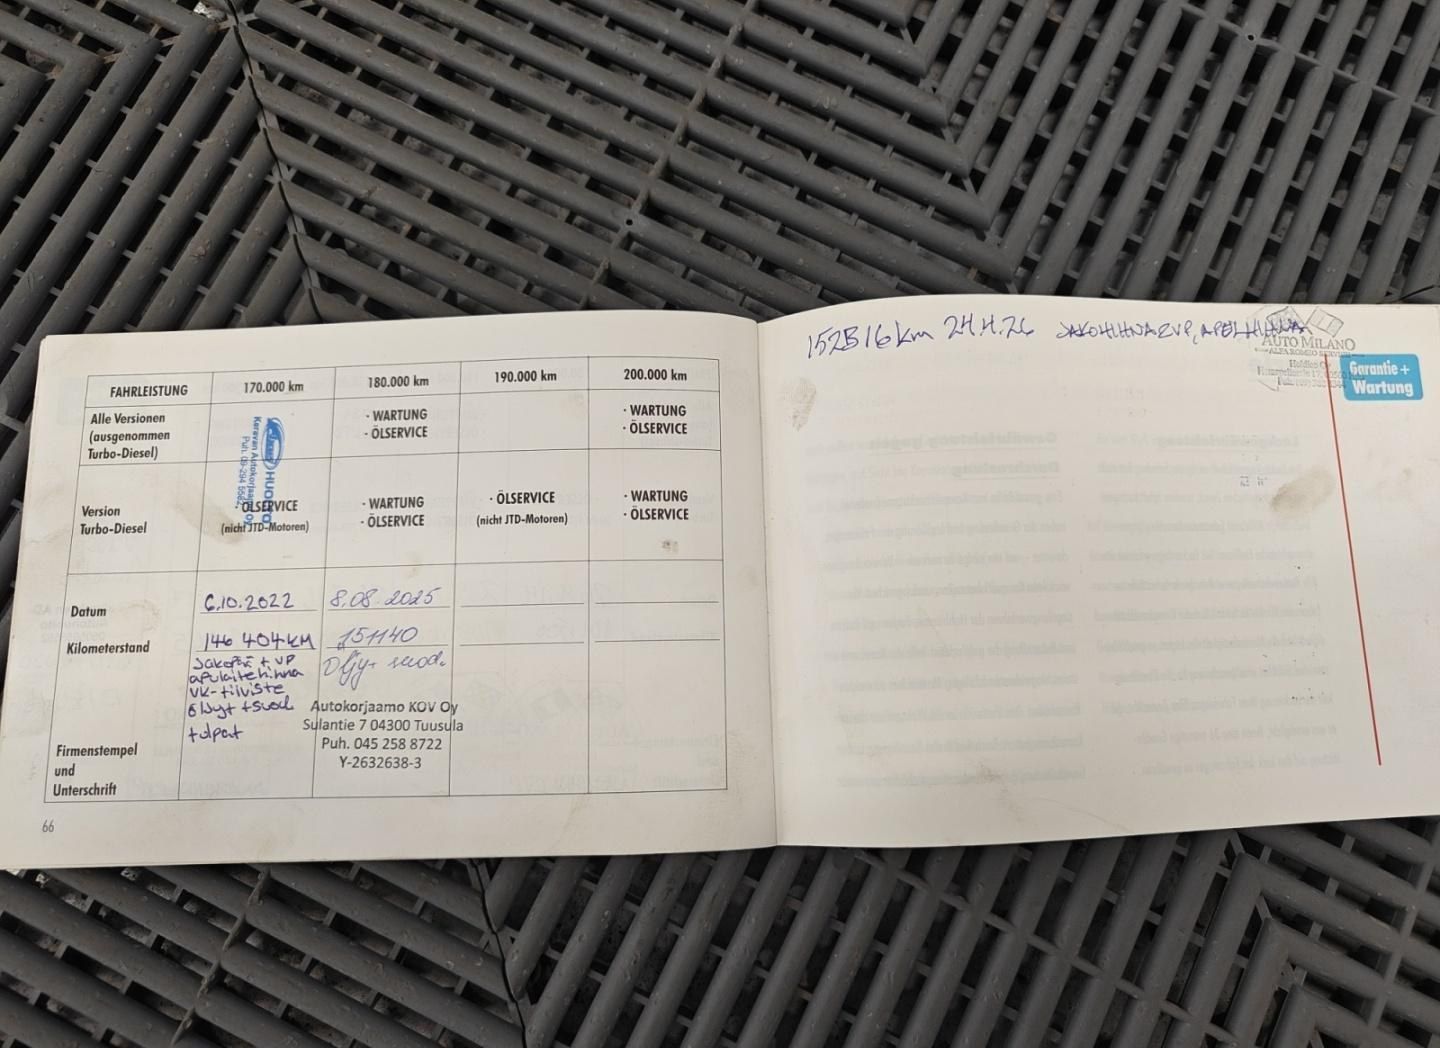 FAHRLEISTUNG 170.000 km 180.000 km 190.000 km 200.000 km
Alle Versionen
(ausgenommen
Turbo-Diesel)
· WARTUNG
· ÖLSERVICE
· WARTUNG
· ÖLSERVICE
HUOLTO
Karavan Autokorjaamo Oy
Puh. 09-294
Version
Turbo-Diesel
ÖLSERVICE
(nicht JTD-Motoren)
· WARTUNG
· ÖLSERVICE
· ÖLSERVICE
(nicht JTD-Motoren)
· WARTUNG
· ÖLSERVICE
Datum 6.10.2022 8.08.2025
Kilometerstand 146 404 KM 151140
Jakopää + VP
apulaitehihna
VK-tiiviste
öljyt + suod
tulpat
Öljy + suod.
Autokorjaamo KOV Oy
Sulantie 7 04300 Tuusula
Puh. 045 258 8722
Y-2632638-3
Firmenstempel
und
Unterschrift
66
152316 km 24.4.26 JAKOHIHNA
AUTO MILANO
ALFA ROMEO SERVICE
Holdico Oy
Garantie +
Wartung